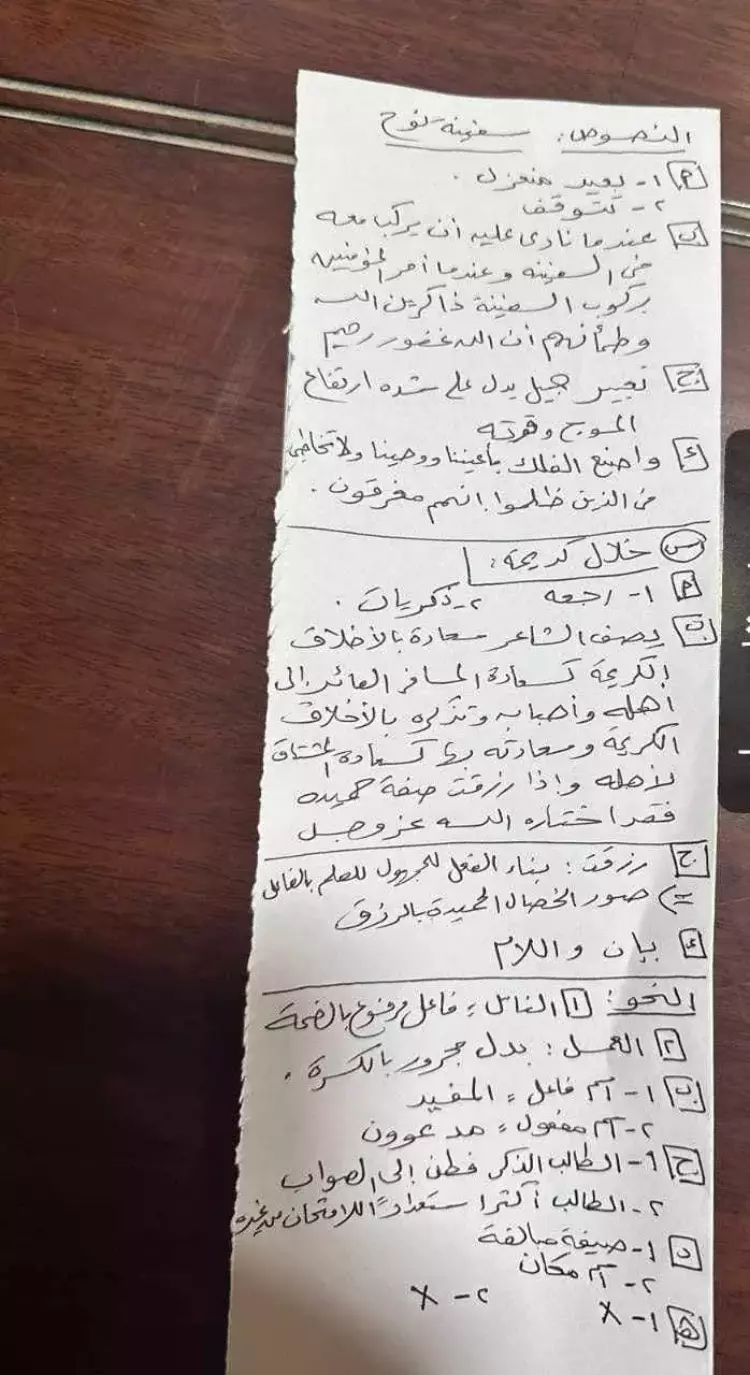 النصوص: سفينة نوح
أ ١- بعيد منعزل .
٢- تتوقف
ب عندما نادى عليه أن يركب معه
في السفينه وعندما أمر المؤمنين
بركوب السفينة ذاكرين الله
وطمأنهم أن الله غفور رحيم
ج تعبير جميل يدل على شده ارتفاع
الموج وقوته
د واصنع الفلك بأعيننا ووحينا ولا تخاطبني
في الذين ظلموا إنهم مغرقون .
س خلال كريمة:
أ ١- رجعه ٢- ذكريات .
ب يصف الشاعر سعادة بالأخلاق
الكريمة كسعادة المسافر العائد إلى
أهله وأصحابه وتذكره بالأخلاق
الكريمة وسعادته بها كسعادة المشتاق
لأهله وإذا رزقت صفة حميده
فقد اختاره الله عز وجل
ج رزقت: بناء الفعل للمجهول للعلم بالفاعل
=) صور الخصال الحميدة بالرزق
د بيان واللام
النحو: ١ الناس: فاعل مرفوع بالضمة
٢ العمل: بدل مجرور بالكسرة .
ب ١- اسم فاعل = المفيد
٢- اسم مفعول = مدعوون
ج ١- الطالب الذكي فطن إلى الصواب
٢- الطالب أكثر استعدادًا للامتحان من غيره
د ١- صيغة مبالغة
٢- اسم مكان
هـ ١- X ٢- X